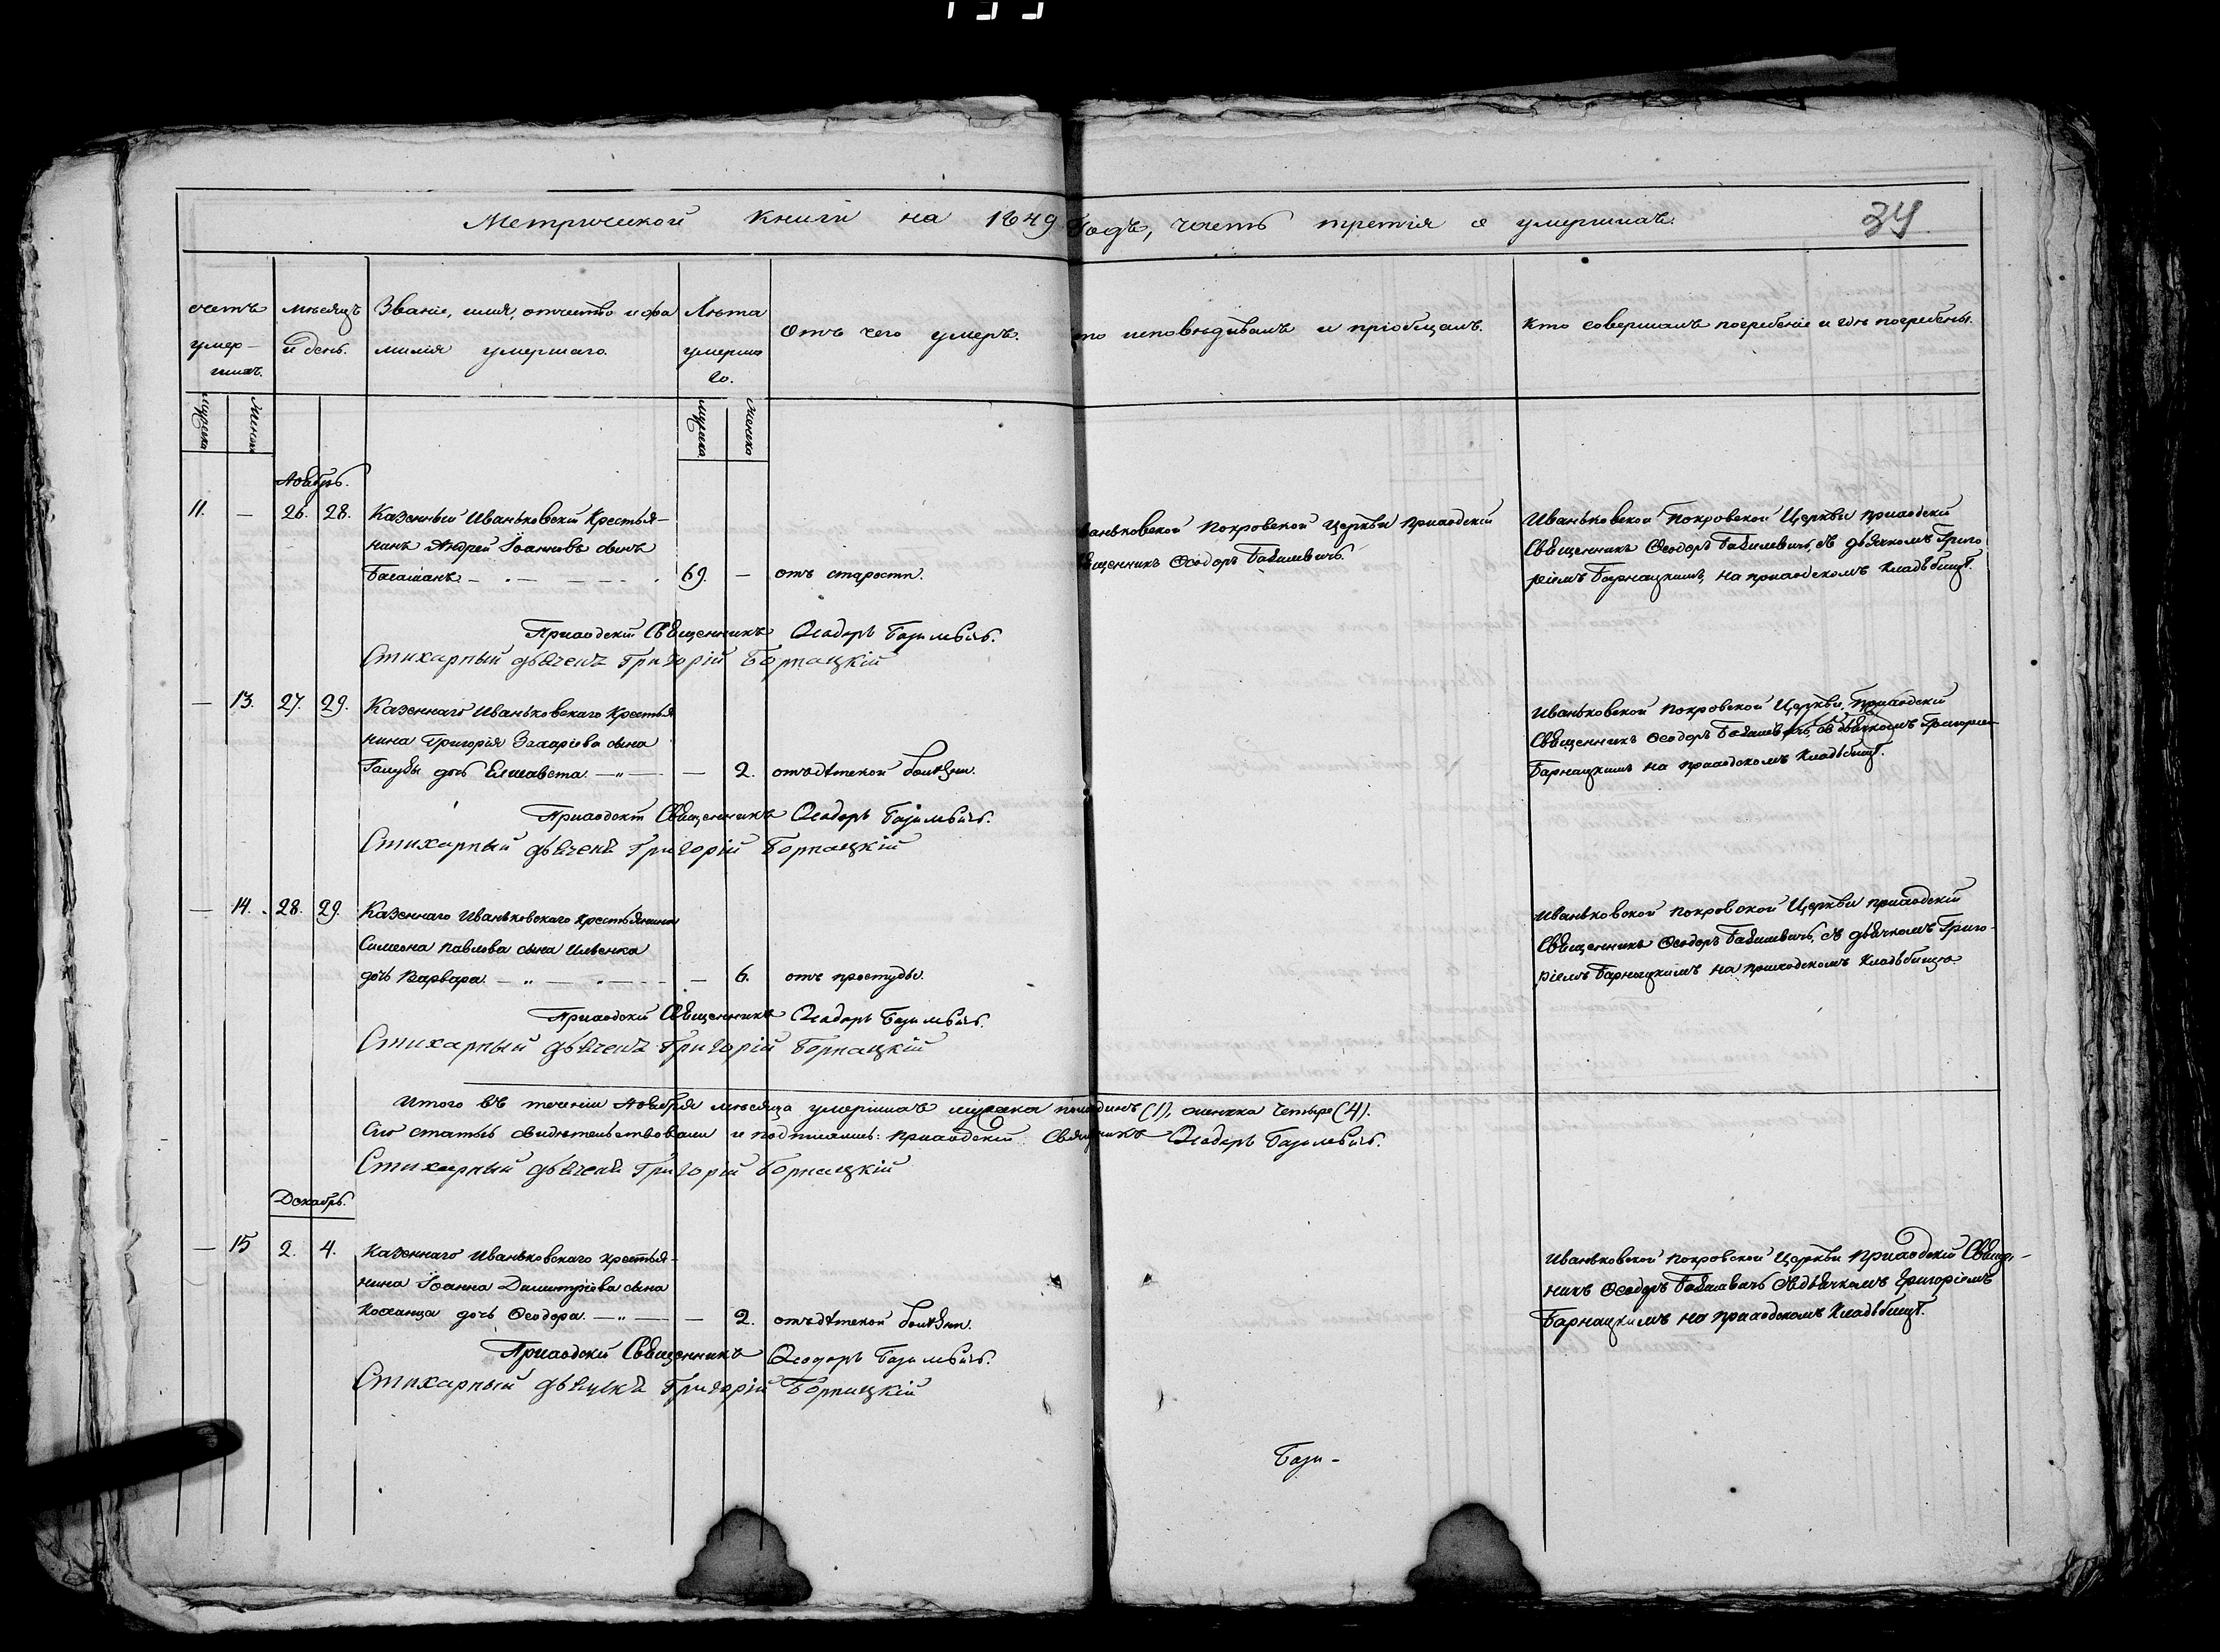 Метрической книги на 1849 Годъ, часть третія о умершихъ.
34
счетъ умер-шихъ.
мѣсяцъ и день.
Званіе, имя, отчество и фа
милія умершаго.
Лѣта умерша го.
Отъ чего умеръ.
то исповѣдывалъ и пріобщалъ.
Кто совершалъ погребеніе и гдѣ погребены.
мужеска
женска
мужеска
женска
Ноябрь.
11. — 26. 28. Казенный Иваньковскій Крестья-
нинъ Андрей Іоанновъ сынъ
69. — отъ старости.
ваньковской Покровской Церкви Приходскій
вященникъ Ѳеодоръ Базилевичъ.
Иваньковской Покровской Церкви приходскій
Священникъ Ѳеодоръ Базилевичъ, съ дьячкомъ Григо
ріемъ Барнацкимъ, на приходскомъ кладбищѣ.
Приходскій Священникъ Ѳеодоръ Базилевичъ.
Стихарный дьячекъ Григорій Борнацкій
— 13. 27. 29. Казеннаго Иваньковскаго Крестья
нина Григорія Захаріева сына
Голубы дочь Елисавета — — 2. отъ дѣтской болѣзни.
Иваньковской Покровской Церкви, Приходскій
Священникъ Ѳеодоръ Базилевичъ, съ дьячкомъ Григоріем
Барнацкимъ на приходскомъ кладбищѣ.
Приходскій Священникъ Ѳеодоръ Базилевичъ.
Стихарный дьячекъ Григорій Борнацкій
— 14. 28. 29. Казеннаго Иваньковскаго крестьянина
Симеона Павлова сына Ильенка
дочь Варвара. — — 6. отъ простуды.
Иваньковской покровской Церкви приходскій
Священникъ Ѳеодоръ Базилевичъ, съ дьячкомъ Григо-
ріемъ Барнацкимъ на приходскомъ кладбищѣ.
Приходскій Священникъ Ѳеодоръ Базилевичъ.
Стихарный дьячекъ Григорій Борнацкій
Итого въ теченіи Ноября мѣсяца умершихъ мужеска одинъ (1), женска четыре (4).
Сію статью свидѣтельствовали и подписались: приходскій Священникъ Ѳеодоръ Базилевичъ.
Стихарный дьячекъ Григорій Борнацкій
Декабрь.
— 15 2. 4. Казеннаго Иваньковскаго крестья-
нина Іоанна Димитріева сына
дочь Ѳеодора. — — 2. отъ дѣтской болѣзни.
Иваньковской покровской Церкви приходскій Священ-
никъ Ѳеодоръ Базилевичъ съ дьячкомъ Григоріемъ
Барнацкимъ на приходскомъ кладбищѣ.
Приходскій Священникъ Ѳеодоръ Базилевичъ.
Стихарный дьячекъ Григорій Борнацкій
Бази-